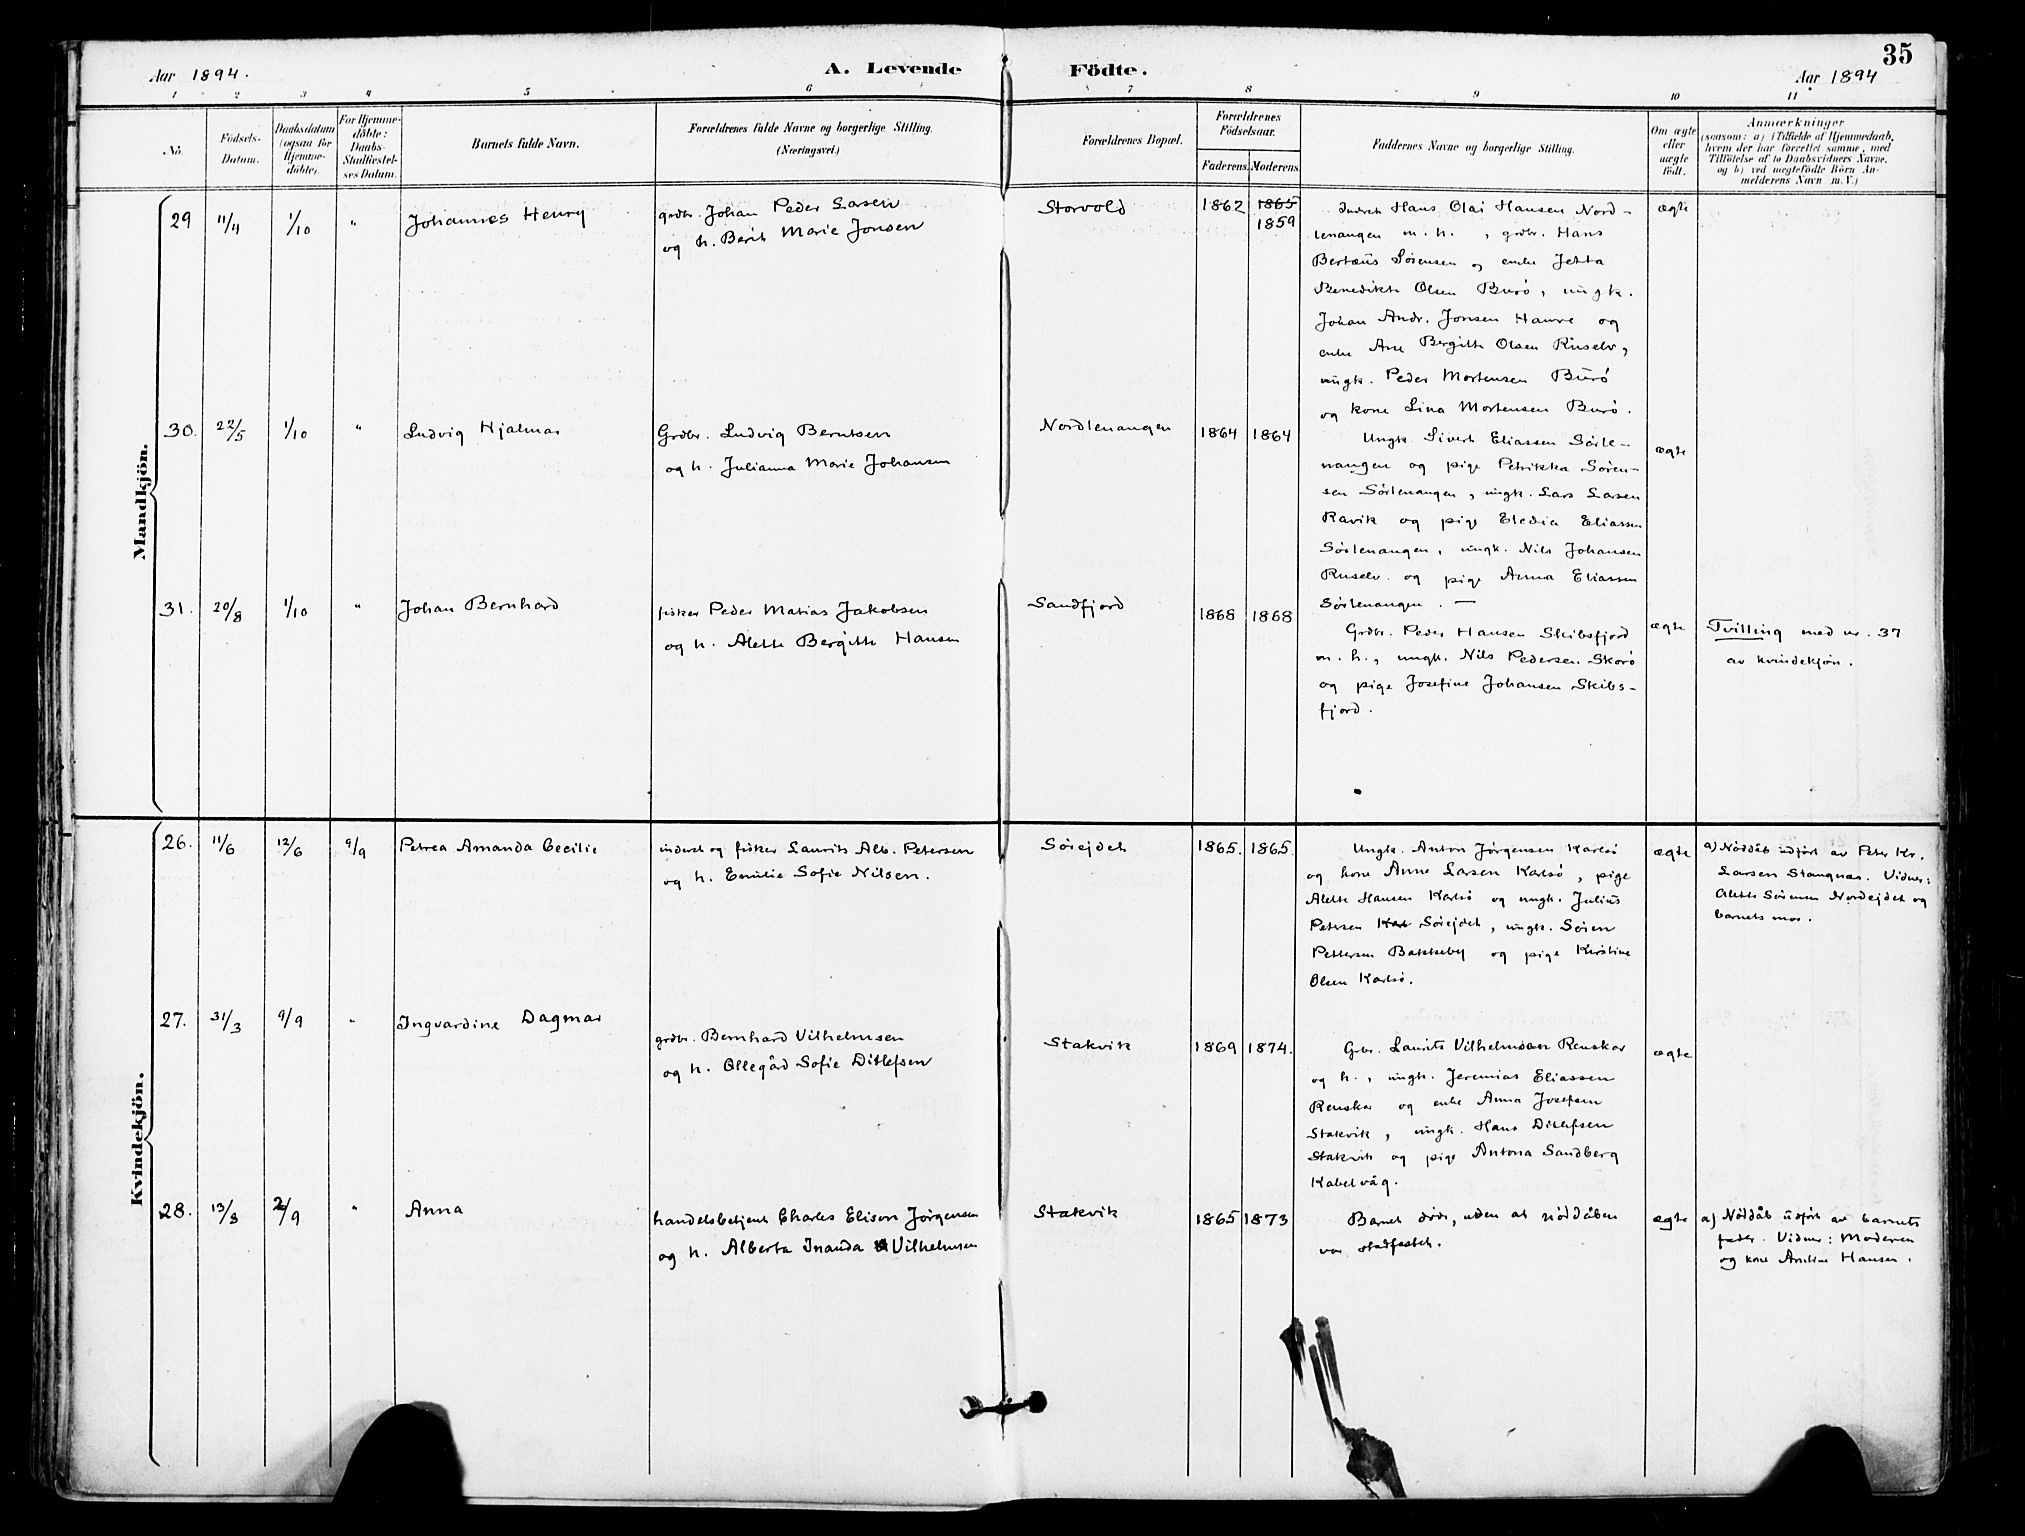 35
Aar 1894.
A. Levende
Födte.
Aar 1894
1 2 3 4 5 6 7 8 9 10 11
No.
Födsels-
Datum.
Daabsdatum
(ogsaa for
Hjemme-
döbte).
For Hjemme-
döbte:
Daabs-
Stadfæstel-
ses Datum.
Barnets fulde Navn.
Forældrenes fulde Navne og borgerlige Stilling.
(Næringsvei.)
Forældrenes Bopæl.
Forældrenes
Födselsaar.
Faderens. Moderens.
Faddernes Navne og borgerlige Stilling.
Om ægte
eller
uægte
født.
Anmærkninger
(saasom: a) i Tilfælde af Hjemmedaab,
hvem der har forrettet samme, med
Tilföielse af to Daabsvidners Navne,
og b) ved uægtefödte Börn An-
melderens Navn m. V.)
Mandkjön.
29
11/4
1/10
"
Johannes Henry
grdbr. Johan Peder Larsen
og h. Berit Marie Jonsen
Storvold
1862
1865
1859
Inderst Hans Olai Hansen Nord-
lenangen m. h. , grdbr. Hans
Bertæus Sørensen og enke Jetta
Benedikte Olsen Burø, ungk.
Johan Andr. Jonsen Hamre og
enke Ane Bergitte Olsen Ruselv,
ungk. Peder Mortensen Burö
og kone Lina Mortensen Burø.
ægte
30.
22/5
1/10
"
Ludvig Hjalmar
Grdbr. Ludvig Berntsen
og h. Julianna Marie Johansen
Nordlenangen
1864
1864
Ungk. Sivert Eliassen Sørle-
nangen og pige Petrikka Søren-
sen Sørlenangen, ungk. Lars Larsen
Ravik og pige Eledia Eliassen
Sørlenangen, ungk. Nils Johansen
Ruselv. og pige Anna Eliassen
Sørlenangen. —
ægte
31.
20/8
1/10
"
Johan Bernhard
fisker Peder Matias Jakobsen
og h. Alette Bergitte Hansen
Sandfjord
1868
1868
Grdbr. Peder Hansen Skibsfjord
m. h., ungk. Nils Pedersen Skorø
og pige Josefine Johansen Skibs-
fjord.
ægte
Tvilling med nr. 37
av kvindekjøn.
Kvindekjön.
26.
11/6
12/6
9/9
Petrea Amanda Cecilie
inderst og fisker Laurits Alb. Petersen
og h. Emilie Sofie Nilsen.
Sørejdet
1865.
1865.
Ungk. Anton Jørgensen Karlsø
og kone Anne Larsen Karlsø, pige
Alette Hansen Karlsø og ungk. Julius
Petersen Karl Sørejdet, ungk. Søren
Pettersen Bakkeby og pige Kirstine
Olsen Karlsø.
ægte
a) Nöddåb udført av Peter Kr.
Larsen Stangnæs. Vidner:
Alette Sørensen Nordejdet og
barnets mor.
27.
31/3
9/9
"
Ingvardine Dagmar
grdbr. Bernhard Vilhelmsen
og h. Ollegård Sofie Ditlefsen
Stakvik
1869
1874.
Grbr. Laurits Vilhelmsen Renskar
og h., ungk. Jeremias Eliassen
Renskar og enke Anna Josefsen
Stakvik, ungk. Hans Ditlefsen
Stakvik og pige Antona Sandberg
Kabelvåg.
ægte
28.
13/8
2/9
"
Anna
handelsbetjent Charles Elison Jørgensen
og h. Alberta Inanda Vilhelmsen
Stakvik
1865
1873
Barnet døde, uden at nöddåben
var stadfæstet.
ægte
a) Nöddåb udført av barnets
fader. Vidner: Moderen
og kone Hansen.